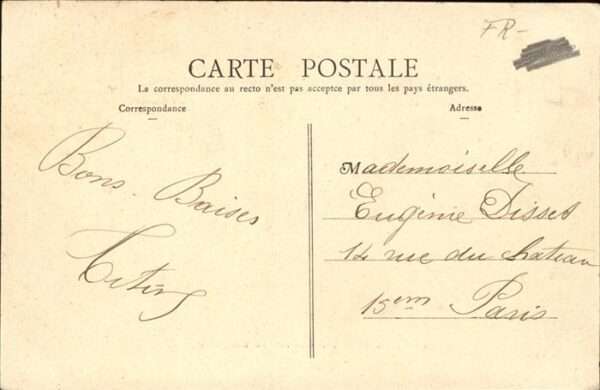 FR-
CARTE POSTALE
La correspondance au recto n'est pas acceptée par tous les pays étrangers.
Correspondance
Adresse
Bons Baises
Mademoiselle
Eugénie Disset
14 rue du chateau
15em Paris